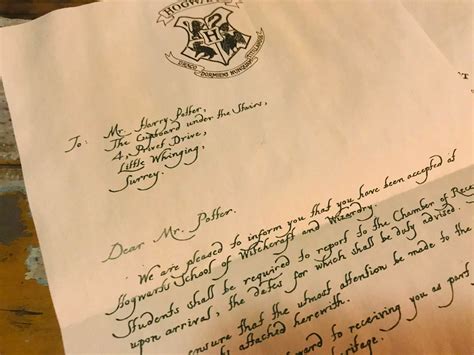 HOGWARTS
DRACO DORMIENS NUNQUAM TITILLANDUS
To: Mr. Harry Potter,
The Cupboard under the Stairs,
4, Privet Drive,
Little Whinging,
Surrey.
Dear Mr. Potter.
We are pleased to inform you that you have been accepted at
Hogwarts School of Witchcraft and Wizardry.
Students shall be required to report to the Chamber of Rece
upon arrival, the dates for which shall be duly advised.
ensure that the utmost attention be made to the
attached herewith.
ward to receiving you as part
heritage.